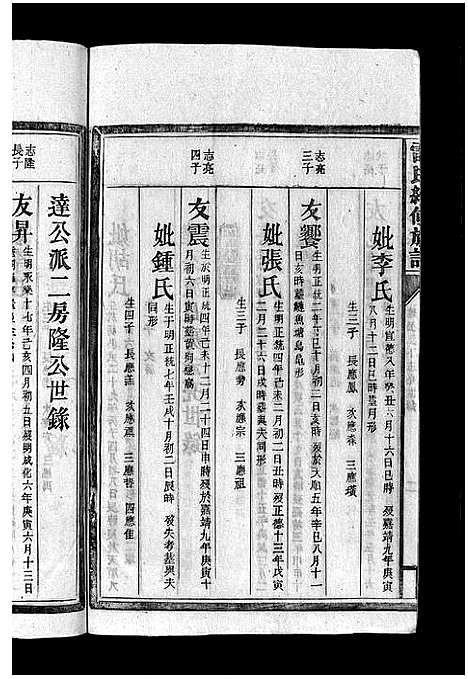 雷氏續修族譜
妣李氏
生明宣德八年癸丑六月十六日巳時
歿嘉靖九年庚寅
八月十二日巳時墓月形
生三子 長應鳳 次應森 三應璜
志亮
三子
友饗
生明正統二年丁巳十月初二日亥時
歿於天順五年辛巳八月十一
日亥時葬鯉魚塘烏龜形
妣張氏
生明正統四年己未三月初二日丑時
歿正德十三年戊寅
二月二十六日戌時墓與夫同形
生三子 長應勞 次應宗 三應祖
志亮
四子
友震
生於明正統四年己未十二月二十四日申時
歿於嘉靖九年庚寅十
月初六日寅時葬黃狗應廟
妣鍾氏
生于明正統七年壬戌十月初二日辰時
歿失考墓與夫
同形
生四子 長應 次應 三應 四應隹
達公派二房隆公世錄
志隆
長子
友昇
生明永樂十七年己亥四月初五日
歿明成化六年庚寅六月十三日